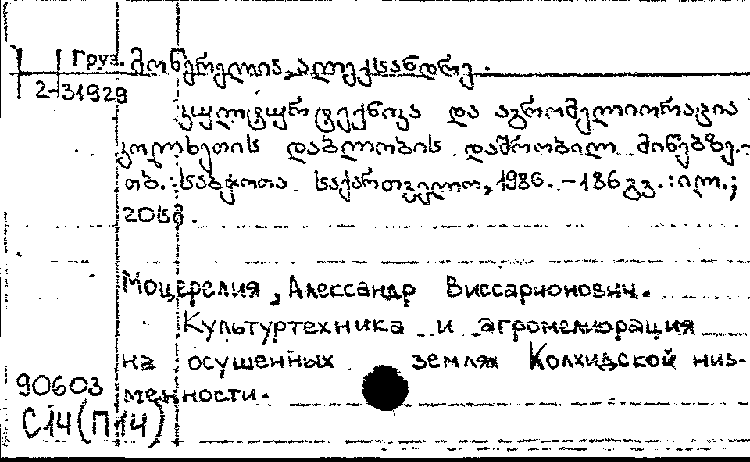 Груз. მოწერელია, ალექსანდრე.
2-31929
კულტურტექნიკა და აგრომელიორაცია
კოლხეთის დაბლობის დაშრობილ მიწებზე.-
თბ.: საბჭოთა საქართველო, 1986. - 186 გვ. : ილ.;
20სმ.
Моцерелия, Александр Виссарионович.
Культуртехника и агромелиорация
на осушенных землях Колхидской низ-
менности.
90603
С14(П14)